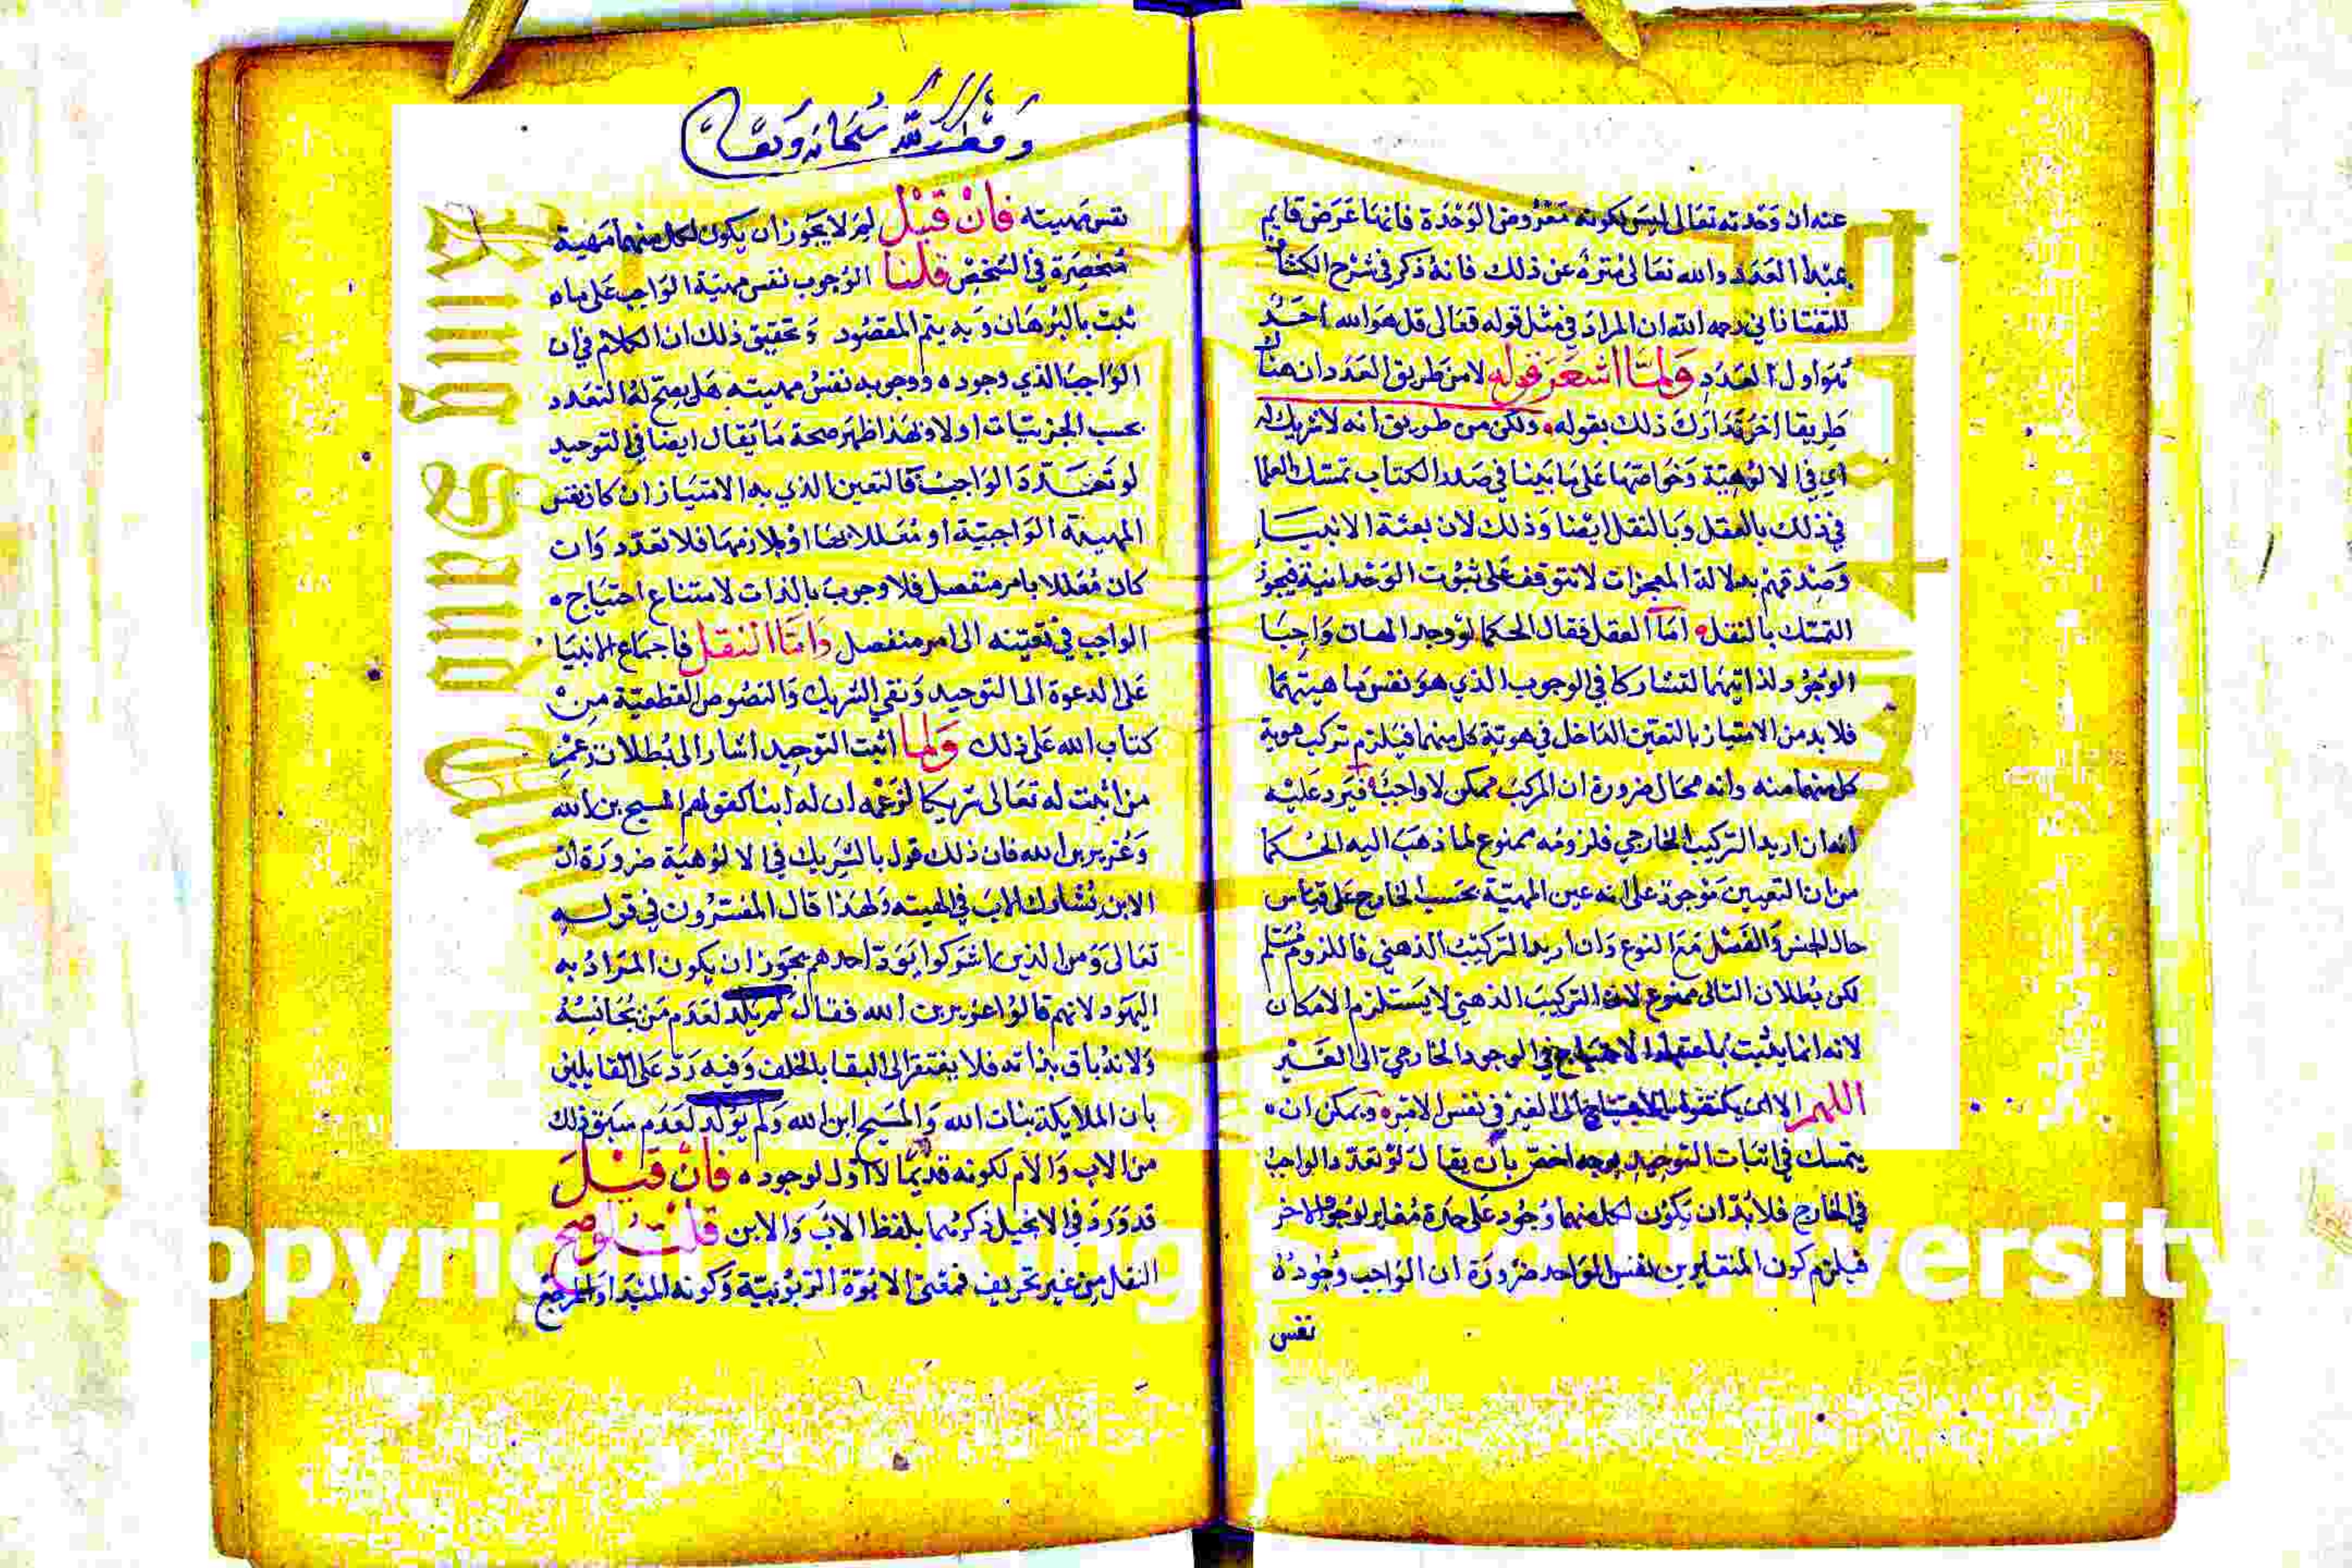 عنه ان وحدته تعالى ليس كونه معروض الوحدة فانها عرض قايم
بمبدا العدد والله تعالى منزه عن ذلك فانه ذكر في شرح الكشاف
للتفتازاني رحمه الله ان المراد في مثل قوله تعالى قل هو الله احد
هو اول العدد ولما اشعر قوله لا من طريق العدد ان هناك
طريقا اخر تدارك ذلك بقوله ولكن من طريق انه لا شريك له
اي في الالوهية وخواصها على ما بينا في صدر الكتاب تمسك العلما
في ذلك بالعقل وبالنقل ايضا وذلك لان بعثة الانبيا
وصدقهم بدلالة المعجزات لا تتوقف على ثبوت الوحدانية فيجوز
التمسك بالنقل اما العقل فقال الحكما لو وجد الهان واجبا
الوجود لذاتيهما لتشاركا في الوجوب الذي هو نفس ماهيتهما
فلا بد من الامتياز بالتعين الداخل في هوية كل منهما فيلزم تركب هوية
كل منهما منه وانه محال ضرورة ان المركب ممكن لا واجب فيرد عليه
انه ان اريد التركيب الخارجي فلزومه ممنوع لما ذهب اليه الحكما
من ان التعين موجود على انه عين المهية بحسب الخارج على قياس
حال الجنس والفصل مع النوع وان اريد التركيب الذهني فاللزوم مسلم
لكن بطلان التالي ممنوع لان التركيب الذهني لا يستلزم الامكان
لانه انما يثبت باعتبار الاحتياج في الوجود الخارجي الى الغير
اللهم الا ان يكتفوا بالاحتياج الى الغير في نفس الامر ويمكن ان
يتمسك في اثبات التوحيد بوجه اخصر بان يقال لو تعدد الواجب
في الخارج فلا بد ان يكون لكل منهما وجود على حدة مغاير لوجود الاخر
فيلزم كون المتغايرين نفس الواحد ضرورة ان الواجب وجوده
نفس
وقف لله سبحانه وتعالى
نفس مهيته فان قيل لم لا يجوز ان يكون لكل منهما مهية
منحصرة في الشخص قلنا الوجوب نفس مهية الواجب على ما
ثبت بالبرهان وبه يتم المقصود وتحقيق ذلك ان الكلام في ان
الواجب الذي وجوده ووجوبه نفس مهيته هل يصح له التعدد
بحسب الجزئيات اولا وبهذا ظهر صحة ما يقال ايضا في التوحيد
لو تعدد الواجب فالتعين الذي به الامتياز ان كان نفس
المهية الواجبية او معللا بها او بلازمها فلا تعدد وان
كان معللا بامر منفصل فلا وجوب بالذات لامتناع احتياج
الواجب في تعينه الى امر منفصل واما النقل فاجماع الانبيا
على الدعوة الى التوحيد ونفي الشريك والنصوص القطعية من
كتاب الله على ذلك ولما اثبت التوحيد اشار الى بطلان زعم
من اثبت له تعالى شريكا لزعمه ان له ابنا كقولهم المسيح بن الله
وعزير بن الله فان ذلك قول بالشريك في الالوهية ضرورة ان
الابن يشارك الاب في الهيته ولهذا قال المفسرون في قوله
تعالى ومن الذين اشركوا يود احدهم يجوز ان يكون المراد به
اليهود لانهم قالوا عزير بن الله فقال لم يلد لعدم من يجانسه
ولانه باق بذاته فلا يفتقر الى البقا بالخلف وفيه رد على القايلين
بان الملايكة بنات الله والمسيح ابن الله ولم يولد لعدم سبق ذلك
من الاب والام لكونه قديما لا اول لوجوده فان قيل
قد ورد في الانجيل ذكرهما بلفظ الاب والابن قلت لو صح
النقل من غير تحريف فمعنى الابوة الربوبية وكونه المبدا والمرجع
Copyright © King Saud University